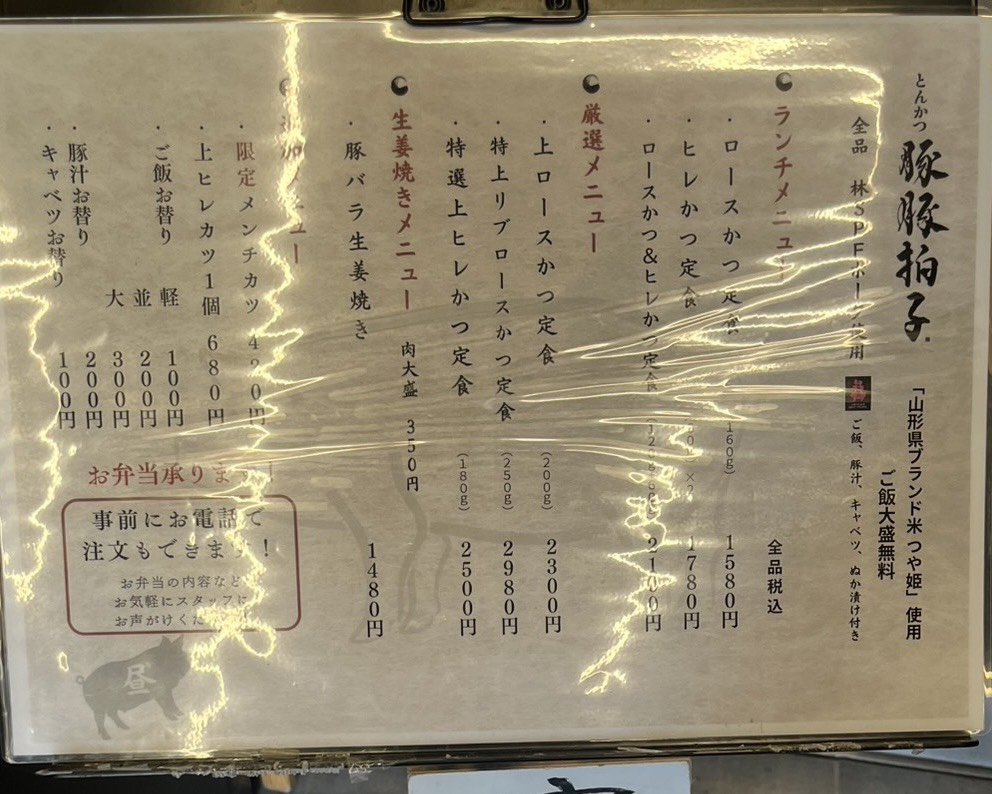 とんかつ 豚豚拍子
「山形県ブランド米 つや姫」使用
ご飯大盛無料
全品 林SPFポーク使用
ご飯、豚汁、キャベツ、ぬか漬け付き
ランチメニュー
全品税込
・ロースかつ定食 (160g) 1580円
・ヒレかつ定食 1780円
・ロースかつ&ヒレかつ定食 2100円
厳選メニュー
・上ロースかつ定食 (200g) 2300円
・特上リブロースかつ定食 (250g) 2980円
・特選上ヒレかつ定食 (180g) 2500円
生姜焼きメニュー 肉大盛 350円
・豚バラ生姜焼き 1480円
メニュー
・限定メンチカツ
・上ヒレカツ1個 680円
・ご飯お替り 軽 100円
並 200円
大 300円
・豚汁お替り 200円
・キャベツお替り 100円
お弁当承ります!
事前にお電話で
注文もできます!
お弁当の内容など
お気軽にスタッフに
お声がけくだ
昼